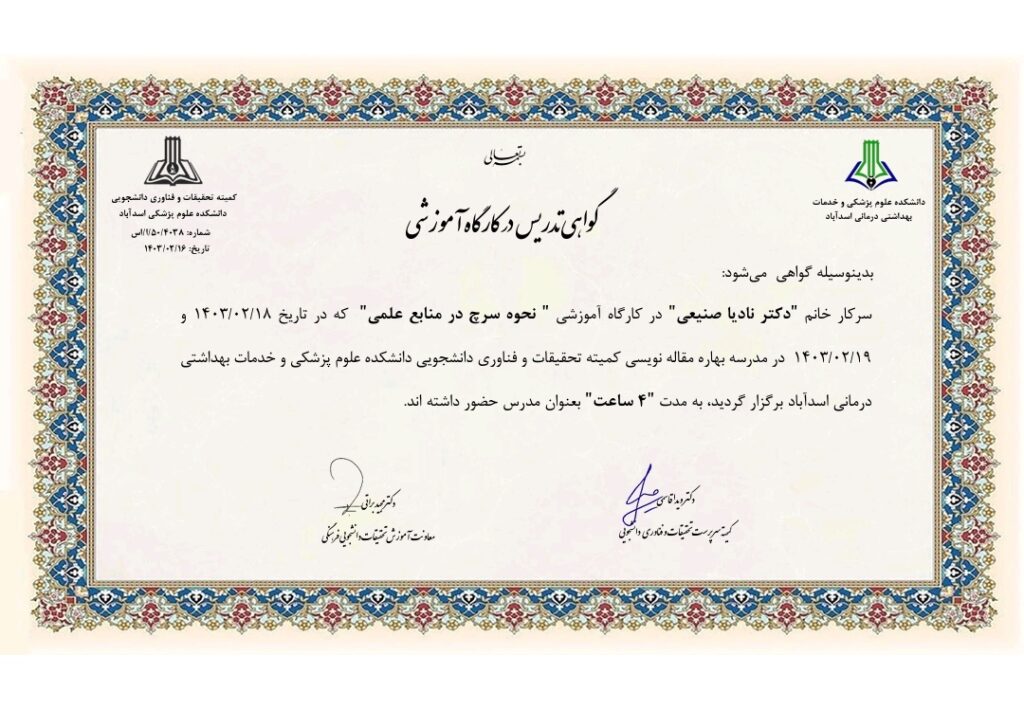 بسمه تعالی
دانشکده علوم پزشکی و خدمات
بهداشتی درمانی اسدآباد
کمیته تحقیقات و فناوری دانشجویی
دانشکده علوم پزشکی اسدآباد
شماره: ۵۰/۴۰۳۸/الف/س
تاریخ: ۱۴۰۳/۰۲/۱۶
گواهی تدریس در کارگاه آموزشی
بدینوسیله گواهی می‌شود:
سرکار خانم "دکتر نادیا صنیعی" در کارگاه آموزشی " نحوه سرچ در منابع علمی" که در تاریخ ۱۴۰۳/۰۲/۱۸ و
۱۴۰۳/۰۲/۱۹ در مدرسه بهاره مقاله نویسی کمیته تحقیقات و فناوری دانشجویی دانشکده علوم پزشکی و خدمات بهداشتی
درمانی اسدآباد برگزار گردید، به مدت "۴ ساعت" بعنوان مدرس حضور داشته اند.
دکتر ویدا قاسمی
کمیته سرپرست تحقیقات و فناوری دانشجویی
دکتر مجید براتی
معاونت آموزش تحقیقات دانشجویی فرهنگی